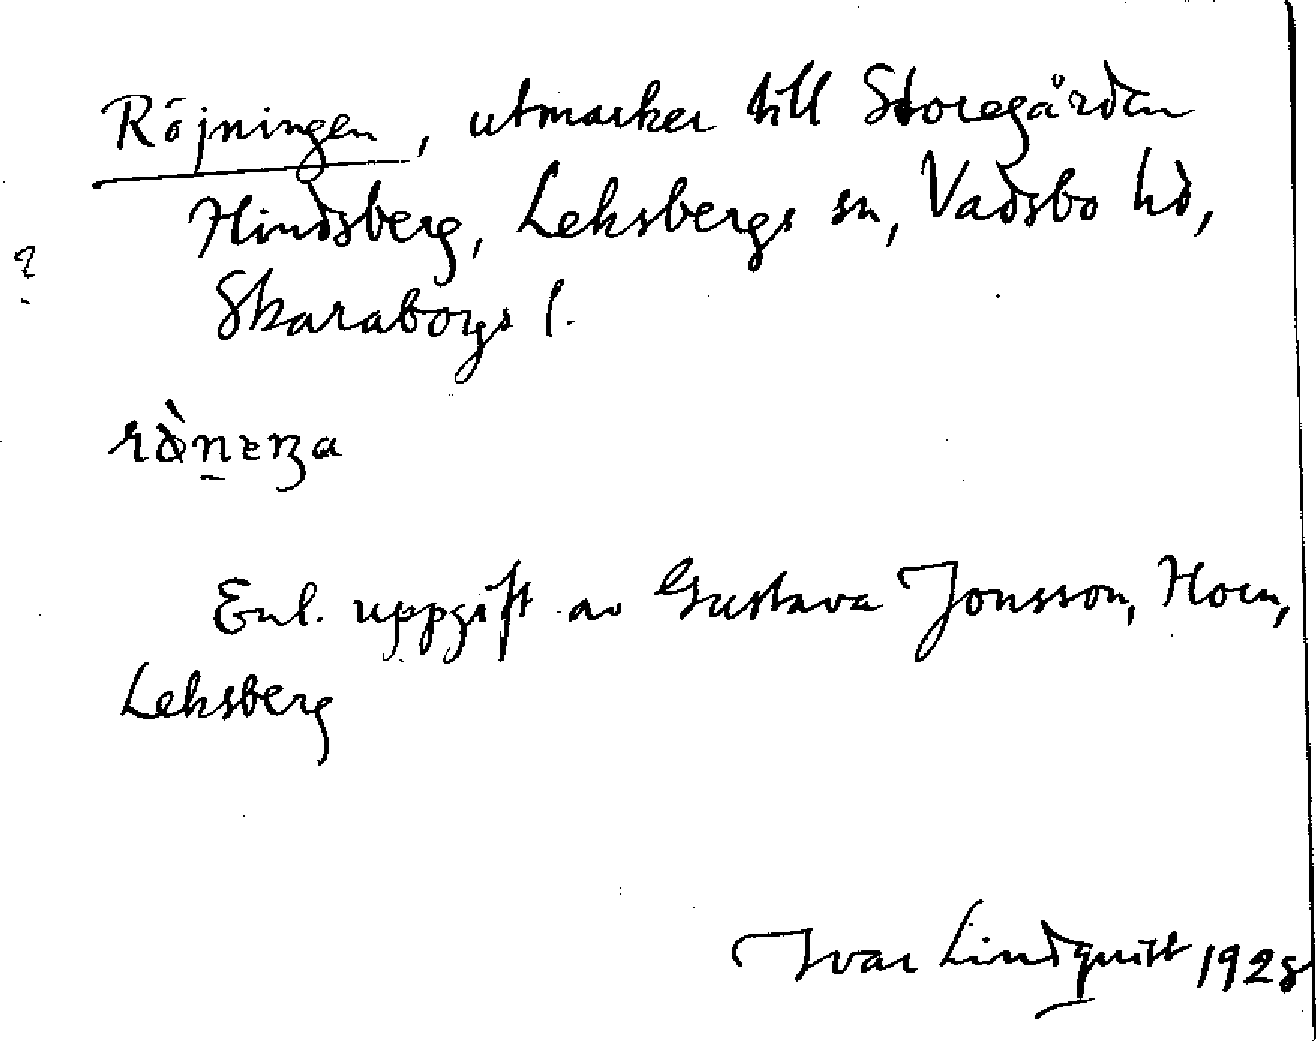 Röjningen, utmarker till Storegården
Hindsberg, Leksbergs sn, Vadsbo hd,
?
Skaraborgs l.
Enl. uppgift av Gustava Jonsson, Horn,
Leksberg
Ivar Lindquist 1928